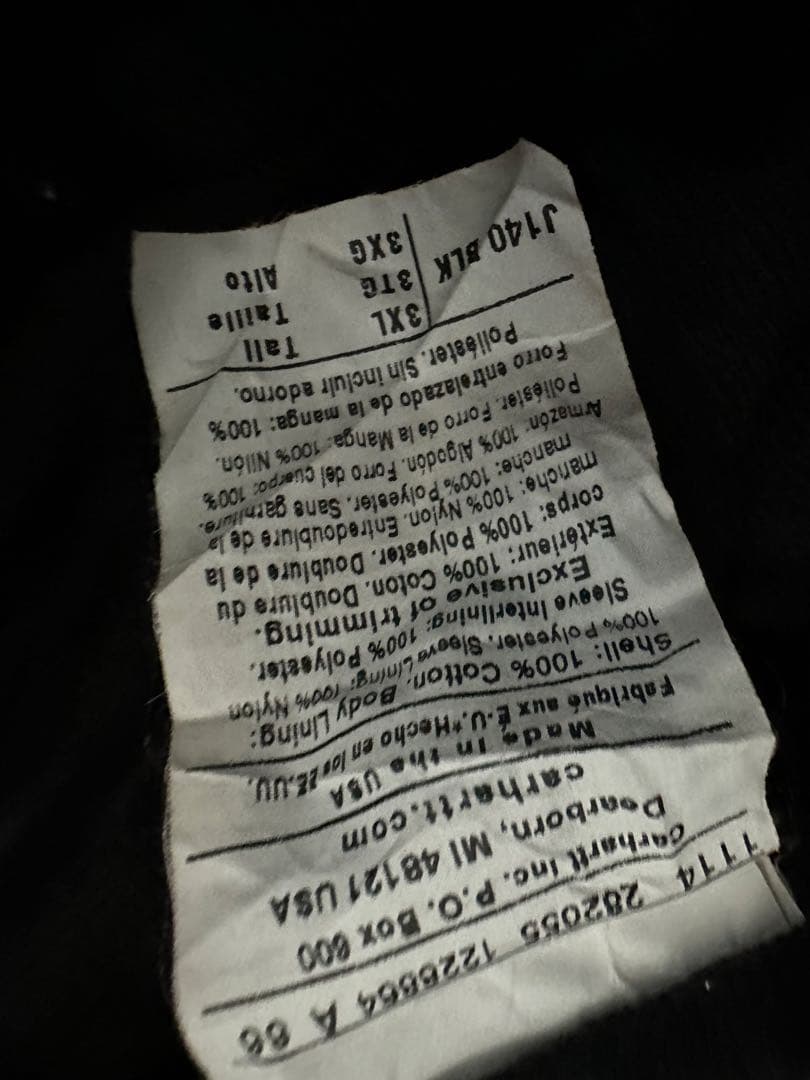 1114 282055 1226664 A 66
Carhartt Inc. P.O. Box 600
Dearborn, MI 48121 USA
carhartt.com
Made in the USA
Fabriqué aux É-U.*Hecho en los EE.UU.
Shell: 100% Cotton. Body Lining:
100% Polyester. Sleeve Lining: 100% Nylon
Sleeve Interlining: 100% Polyester.
Exclusive of trimming.
Extérieur: 100% Coton. Doublure du
corps: 100% Polyester. Doublure de la
manche: 100% Nylon. Entredoublure de la
manche: 100% Polyester. Sans garniture.
Armazón: 100% Algodón. Forro del cuerpo: 100%
Poliéster. Forro de la Manga: 100% Nilón.
Forro entrelazado de la manga: 100%
Poliéster. Sin incluir adorno.
J140 BLK
3XL Tall
3TG Taille
3XG Alto